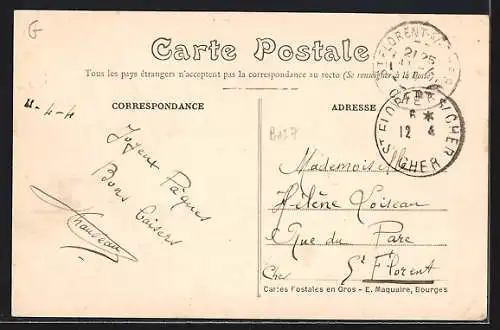 G
Carte Postale
Tous les pays étrangers n'acceptent pas la correspondance au recto (Se renseigner à la Poste)
CORRESPONDANCE
ADRESSE
11-4-4
B127
Joyeux Pâques
Bons baisers
Mademoiselle
Hélène Loiseau
Rue du Parc
St Florent
Cher
Cartes Postales en Gros - E. Maquaire, Bourges
ST FLORENT S/ CHER
CHER
12 4